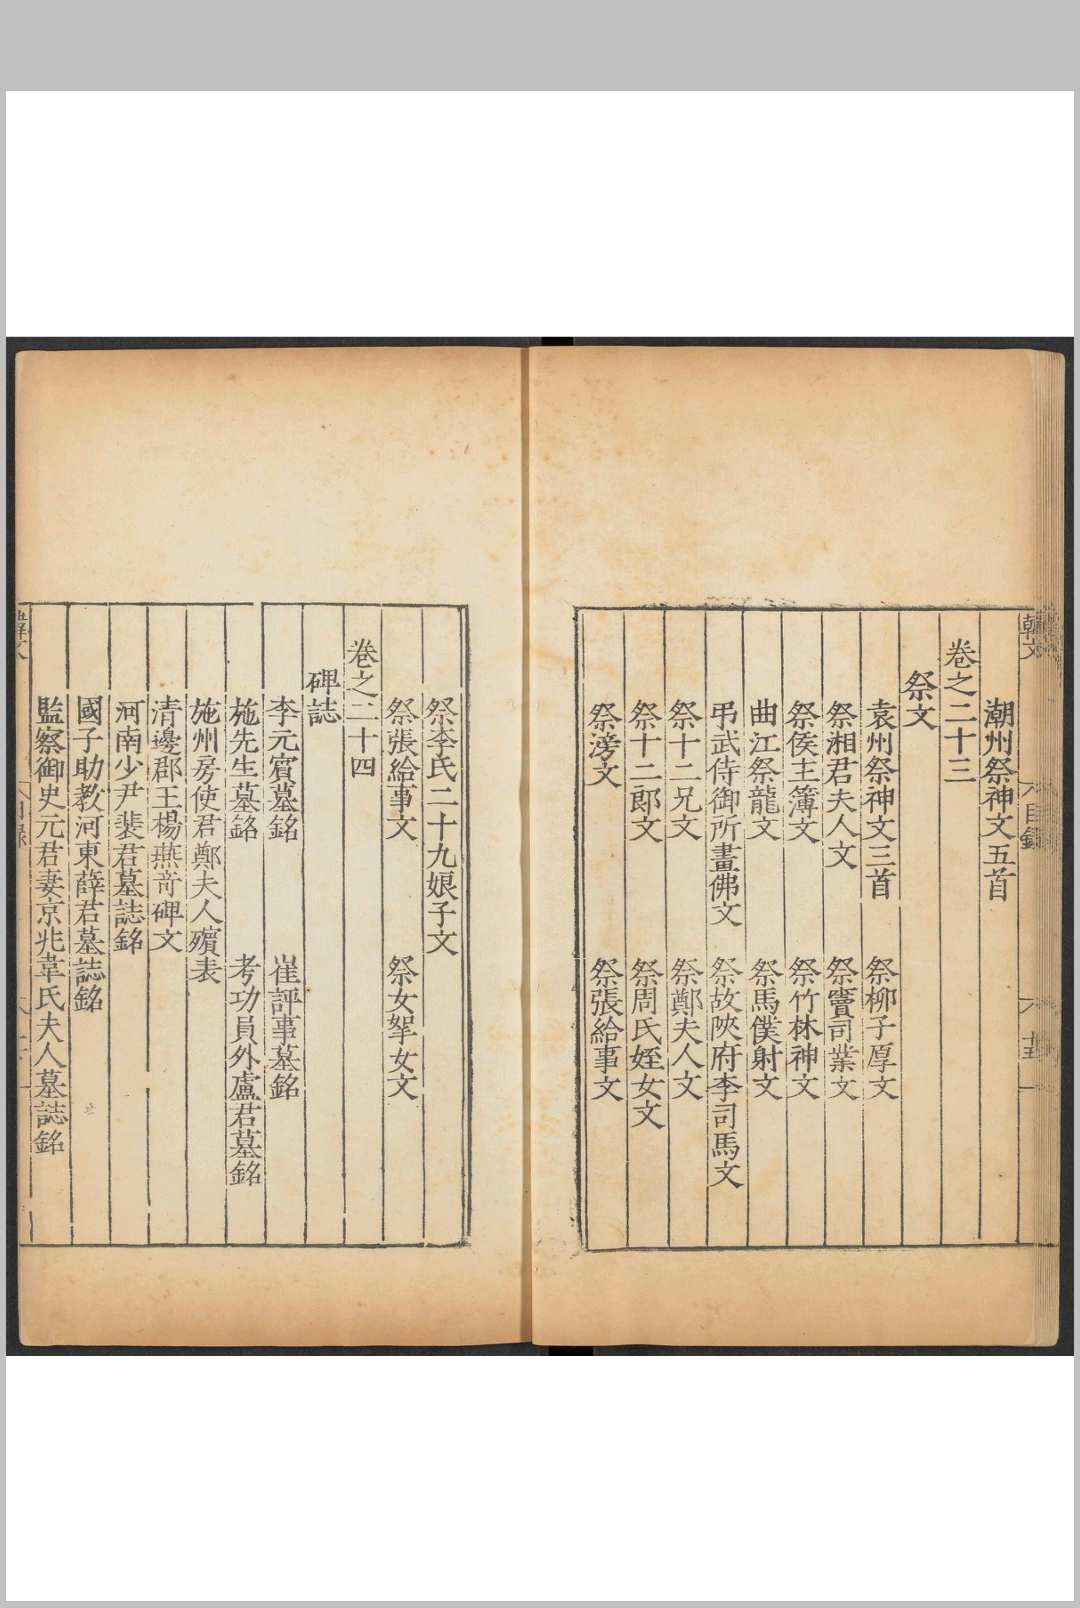 韓文
目録
廿五
潮州祭神文五首
卷之二十三
祭文
袁州祭神文三首 祭柳子厚文
祭湘君夫人文 祭竇司業文
祭侯主簿文 祭竹林神文
曲江祭龍文 祭馬僕射文
弔武侍御所畫佛文 祭故陝府李司馬文
祭十二兄文 祭鄭夫人文
祭十二郎文 祭周氏姪女文
祭滂文 祭張給事文
祭李氏二十九娘子文
祭張給事文 祭女挐女文
卷之二十四
碑誌
李元賓墓銘 崔評事墓銘
施先生墓銘 考功員外盧君墓銘
施州房使君鄭夫人殯表
清邊郡王楊燕奇碑文
河南少尹裴君墓誌銘
國子助教河東薛君墓誌銘
監察御史元君妻京兆韋氏夫人墓誌銘